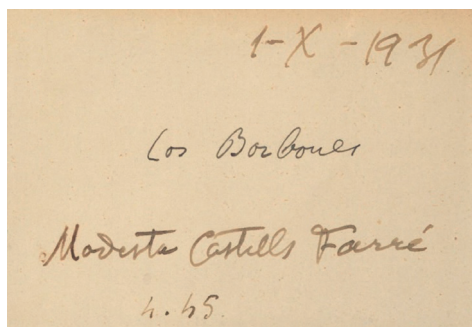 1-X-1931
Los Borbones
Modesta Castells Farré
4.45